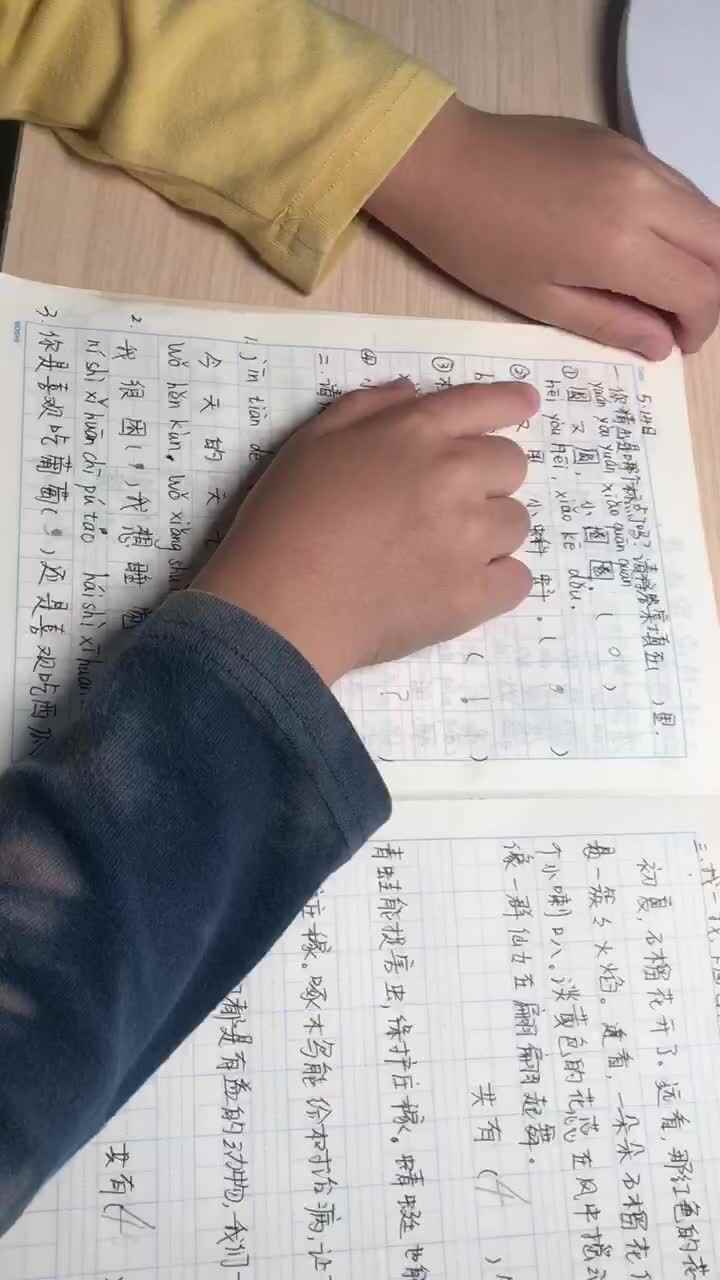 5.14日
一.你猜出是哪个标点了吗?请将答案填在( )里.
yuán yòu yuán xiǎo quān quān
① 圆又圆,小圈圈。( 。)
hēi yòu hēi, xiǎo kē dǒu.
② 又黑,小蝌蚪。( , )
③ ( ! )
④ 小 ( ? )
二.请
1. jīn tiān de
今天的天
wǒ hěn kùn, wǒ xiǎng shuì
2. 我很困( , )我想睡
nǐ shì xǐ huān chī pú táo hái shì xǐ huān
3. 你是喜欢吃葡萄( , )还是喜欢吃西瓜
三.找一找
初夏,石榴花开了。远看,那红色的花
是一簇簇火焰。近看,一朵朵石榴花
个小喇叭。淡黄色的花蕊在风中
像一群仙女在翩翩起舞。
共有(4 )
青蛙能捉害虫,保护庄稼。蜻蜓也能
庄稼。啄木鸟能给树木治病,让
都是有益的动物,我们
共有(4